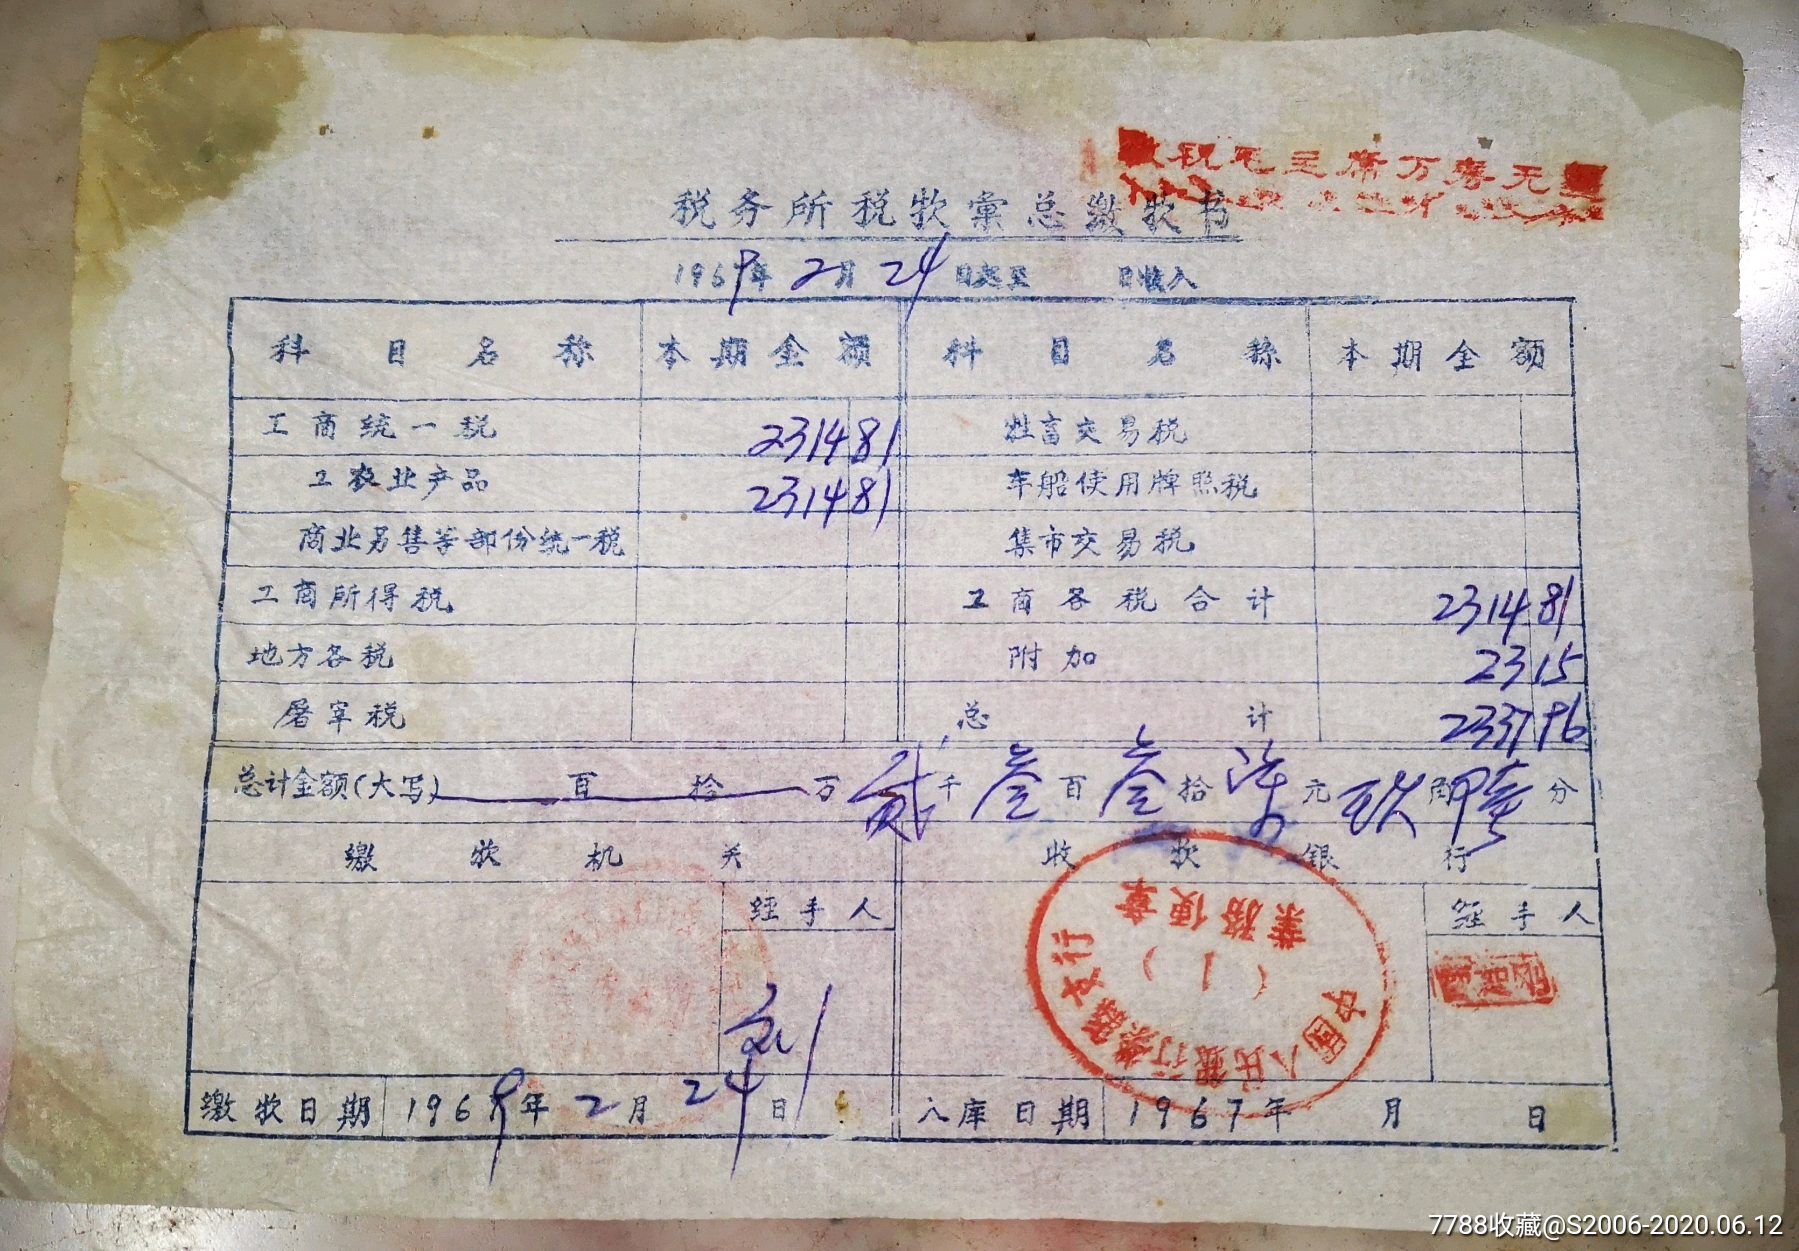 敬祝毛主席万寿无疆
税务所税款彙总缴款书
1969年2月24日起至 日收入
科目名称 本期金额 科目名称 本期金额
工商统一税 231481 牲畜交易税
工农业产品 231481 车船使用牌照税
商业另售等部份统一税 集市交易税
工商所得税 工商各税合计 231481
地方各税 附加 2315
屠宰税 总计 233796
总计金额(大写) 百 拾 万 贰千叁百叁拾柒元玖角 分
缴款机关 收款银行
经手人 经手人
刘
中国人民银行 支行
(1)
業務便章
缴款日期 1969年2月24日 入库日期 1967年 月 日
7788收藏@S2006-2020.06.12